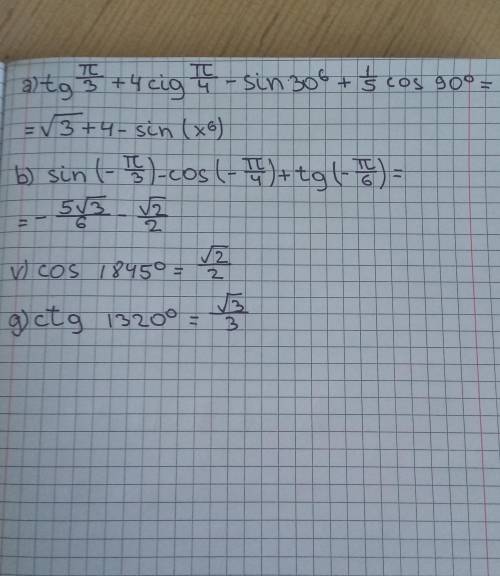 a) tg π/3 + 4 cig π/4 - sin 30⁶ + 1/5 cos 90° =
= √3 + 4 - sin (x⁶)
b) sin (-π/3) - cos (-π/4) + tg (-π/6) =
= - 5√3/6 - √2/2
v) cos 1845° = √2/2
g) ctg 1320° = √3/3